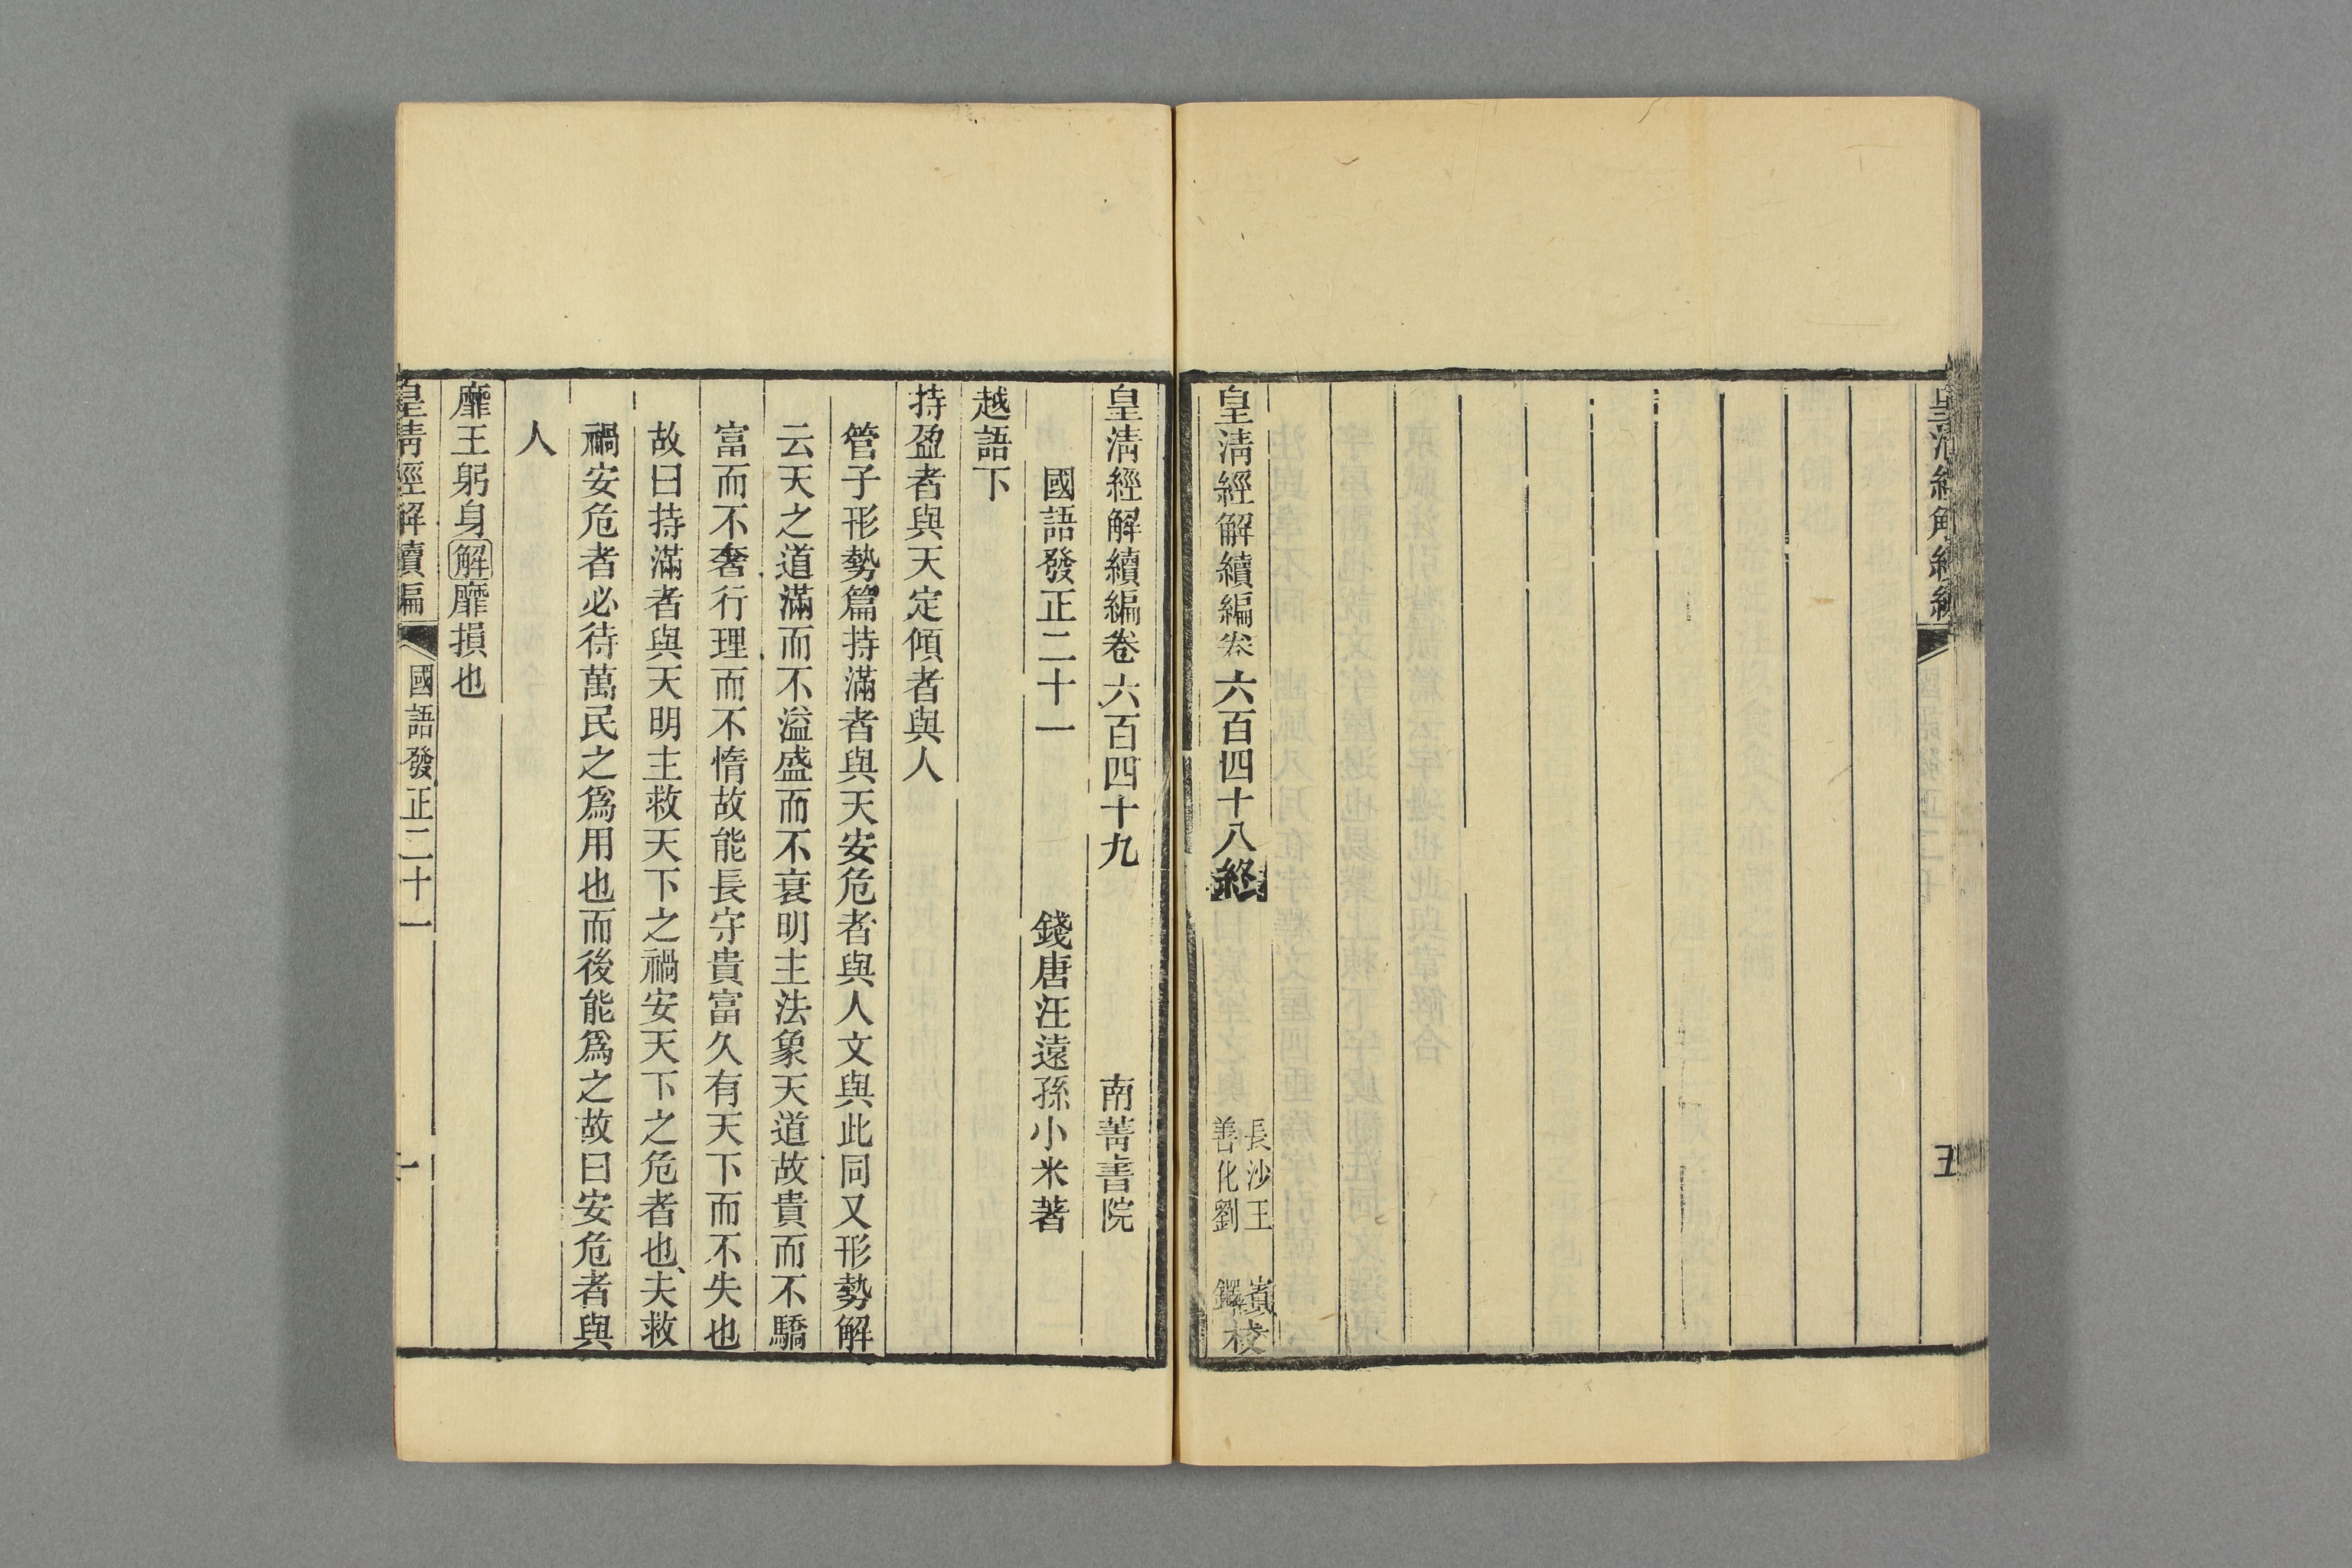 五
皇清經解續編卷六百四十八終
長沙王
善化劉
校
皇清經解續編卷六百四十九
南菁書院
國語發正二十一
錢唐汪遠孫小米著
越語下
持盈者與天定傾者與人
管子形勢篇持滿者與天安危者與人文與此同又形勢解
云天之道滿而不溢盛而不衰明主法象天道故貴而不驕
富而不奢行理而不惰故能長守貴富久有天下而不失也
故曰持滿者與天明主救天下之禍安天下之危者也夫救
禍安危者必待萬民之爲用也而後能爲之故曰安危者與
人
靡王躬身解靡損也
皇清經解續編
國語發正二十一
一